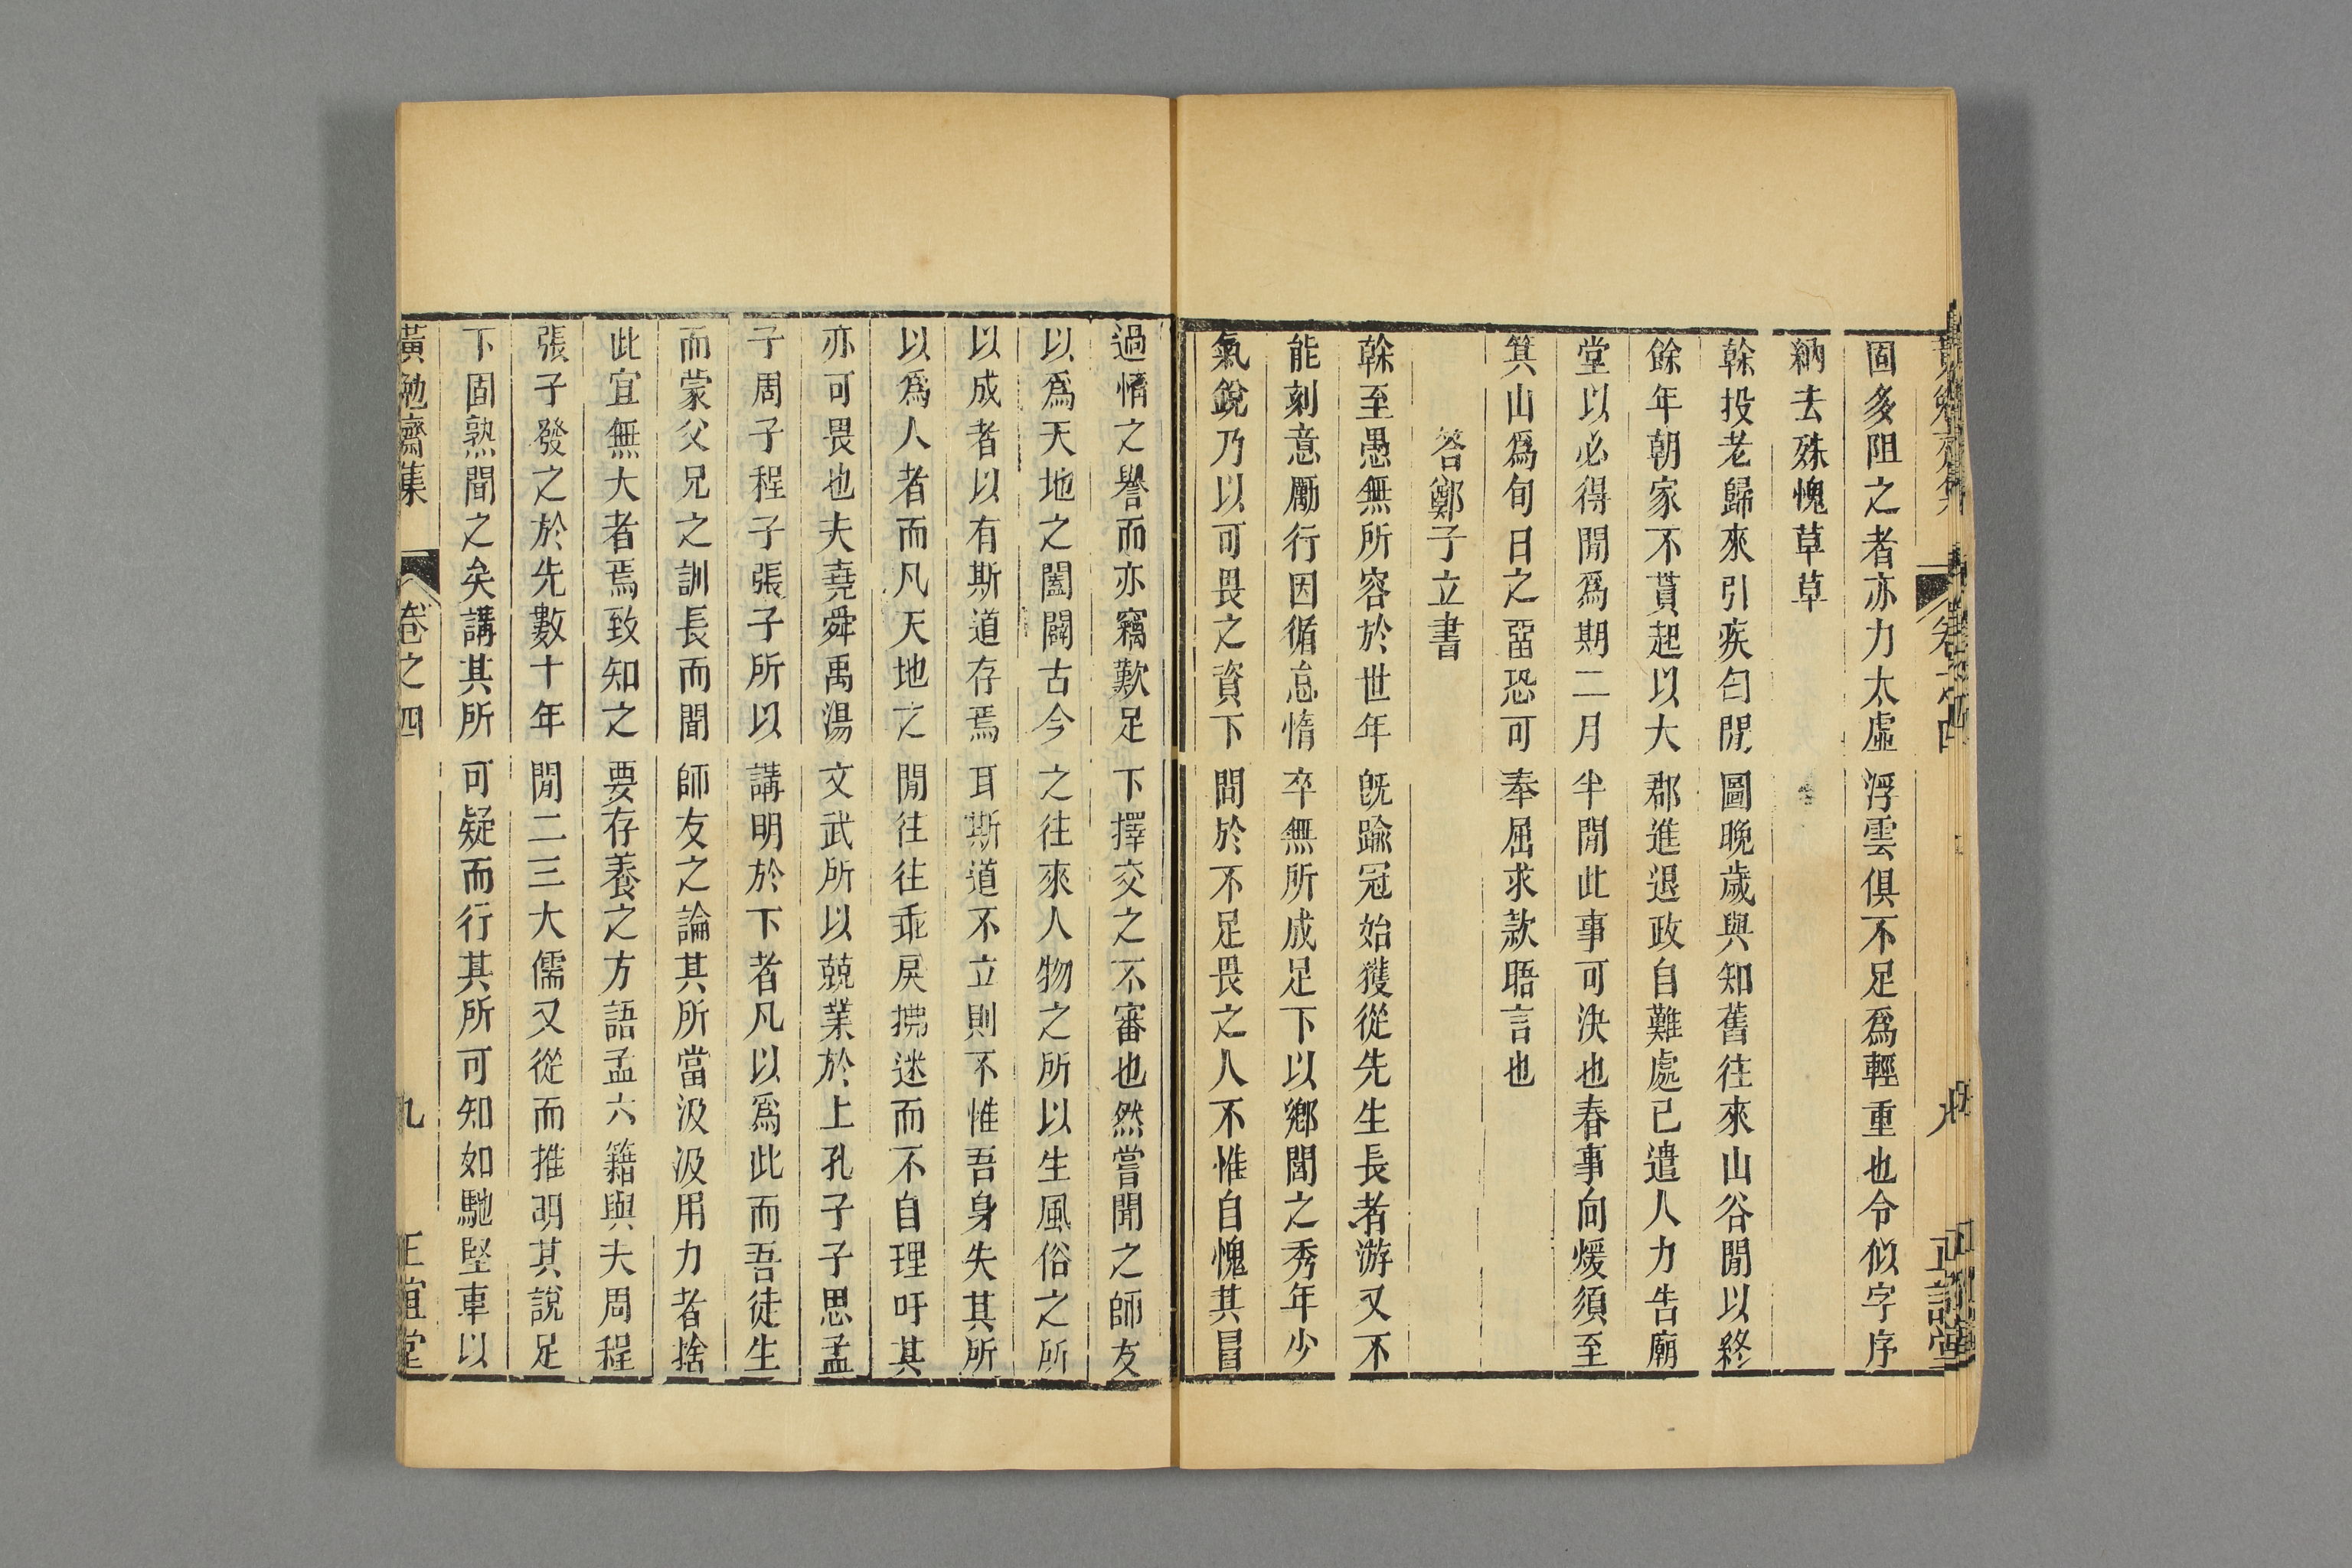 固多阻之者亦力太虛浮雲俱不足爲輕重也令似字序
納去殊愧草草
榦投老歸來引疾匄閒圖晚歲與知舊往來山谷閒以終
餘年朝家不貰起以大郡進退政自難處已遣人力告廟
堂以必得閒爲期二月半閒此事可決也春事向煖須至
箕山爲旬日之畱恐可奉屈求款晤言也
答鄭子立書
榦至愚無所容於世年旣踰冠始獲從先生長者游又不
能刻意勵行因循怠惰卒無所成足下以鄉閭之秀年少
氣銳乃以可畏之資下問於不足畏之人不惟自愧其冒
過情之譽而亦竊歎足下擇交之不審也然嘗聞之師友
以爲天地之闔闢古今之往來人物之所以生風俗之所
以成者以有斯道存焉耳斯道不立則不惟吾身失其所
以爲人者而凡天地之閒往往乖戾拂迷而不自理吁其
亦可畏也夫堯舜禹湯文武所以兢業於上孔子子思孟
子周子程子張子所以講明於下者凡以爲此而吾徒生
而蒙父兄之訓長而聞師友之論其所當汲汲用力者捨
此宜無大者焉致知之要存養之方語孟六籍與夫周程
張子發之於先數十年閒二三大儒又從而推明其說足
下固熟聞之矣講其所可疑而行其所可知如馳堅車以
黃勉齋集 卷之四 九 正誼堂